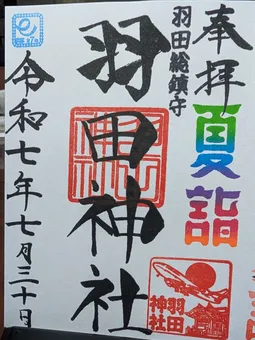 奉拝
夏詣
羽田総鎮守
羽田神社
令和七年七月三十日
羽田
神社